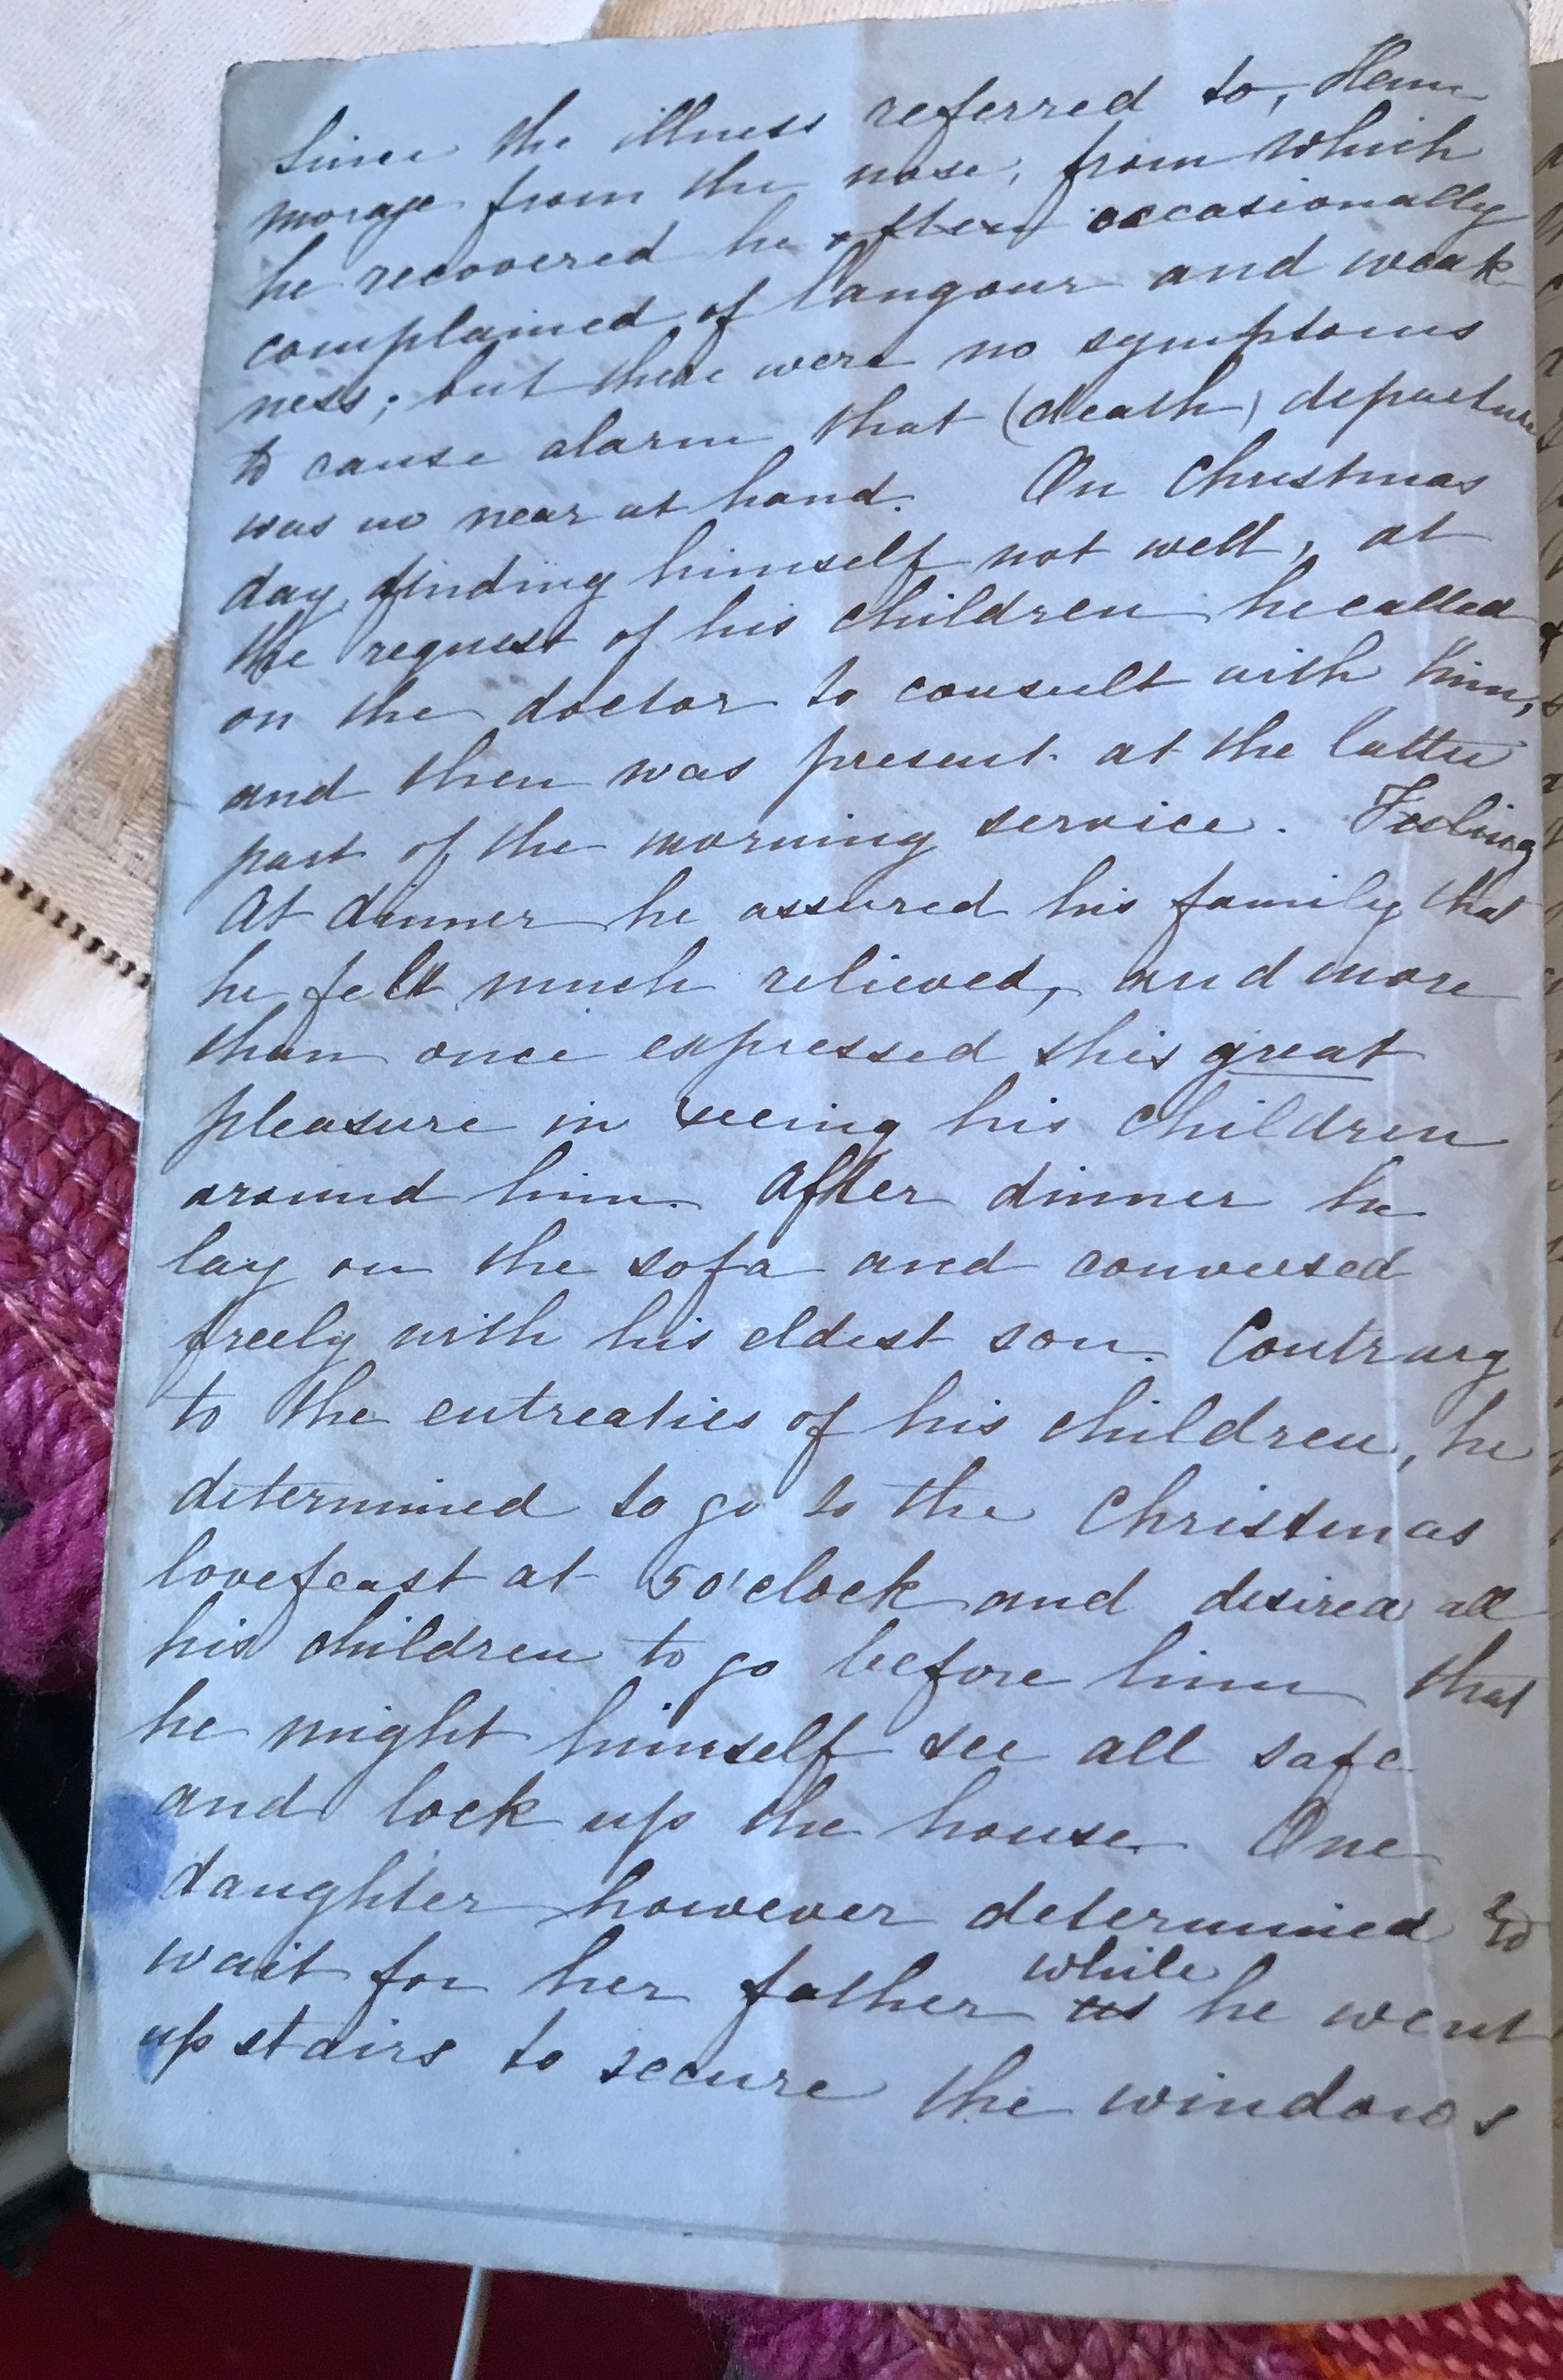 Since the illness referred to, Hem-
morage from the nose, from which
he recovered he often occasionally
complained of langour and weak-
ness; but there were no symptoms
to cause alarm that (death) departure
was so near at hand. On Christmas
day, finding himself not well, at
the request of his children he called
on the doctor to consult with him,
and then was present at the latter
part of the morning service. Feeling
At dinner he assured his family that
he felt much relieved, and more
than once expressed this great
pleasure in seeing his children
around him. After dinner he
lay on the sofa and conversed
freely with his eldest son. Contrary
to the entreaties of his children, he
determined to go to the Christmas
lovefeast at 5 o'clock and desired all
his children to go before him that
he might himself see all safe
and lock up the house. One
daughter however determined to
wait for her father as while he went
up stairs to secure the windows